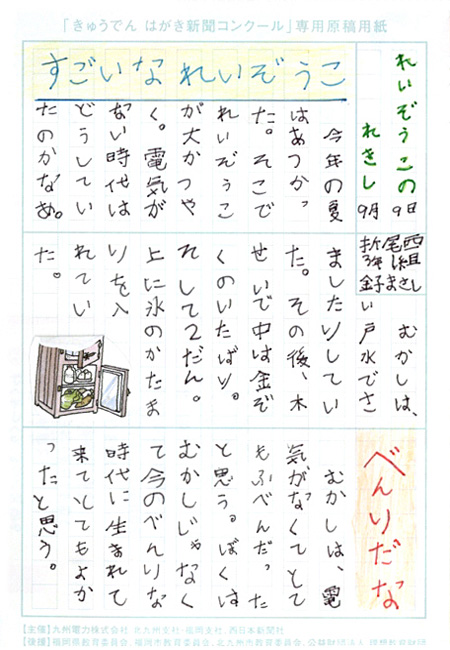 「きゅうでん はがき新聞コンクール」専用原稿用紙
れいぞうこの
れきし
9月9日
すごいなれいぞうこ
今年の夏
はあつかっ
た。そこで
れいぞうこ
が大かつや
く。電気が
ない時代は
どうしてい
たのかなあ。
折尾西
3年1組
金子まさし
むかしは、
い戸水でさ
ましたりしてい
た。その後、木
せいで中は金ぞ
くのいたばり。
そして2だん。
上に氷のかたま
りを入
れてい
た。
べんりだな
むかしは、電
気がなくてとて
もふべんだった
と思う。ぼくは
むかしじゃなく
て今のべんりな
時代に生まれて
来てとてもよか
ったと思う。
【主催】九州電力株式会社、北九州支社・福岡支社、西日本新聞社
【後援】福岡県教育委員会、福岡市教育委員会、北九州市教育委員会、公益財団法人 理想教育財団